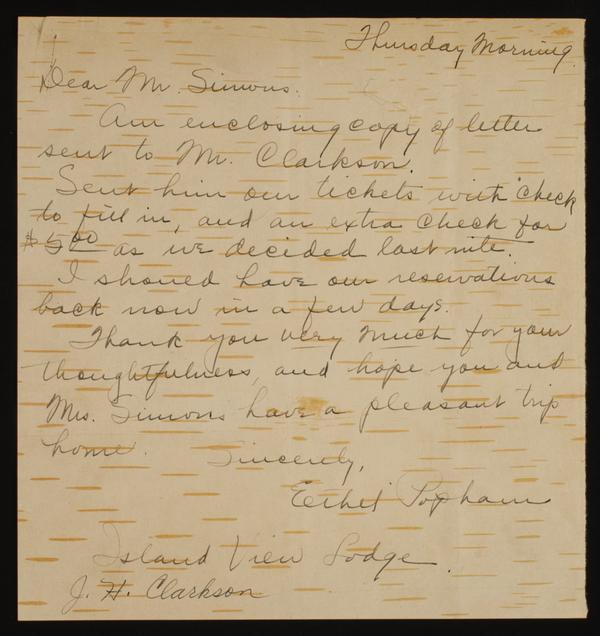 Thursday Morning.
Dear Mr. Simons.
Am enclosing copy of letter
sent to Mr. Clarkson.
Sent him our tickets with check
to fill in, and an extra check for
$5.00 as we decided last nite.
I should have our reservations
back now in a few days.
Thank you very much for your
thoughtfulness, and hope you and
Mrs. Simons have a pleasant trip
home.
Sincerely,
Ethel Popham
Island View Lodge
J. H. Clarkson